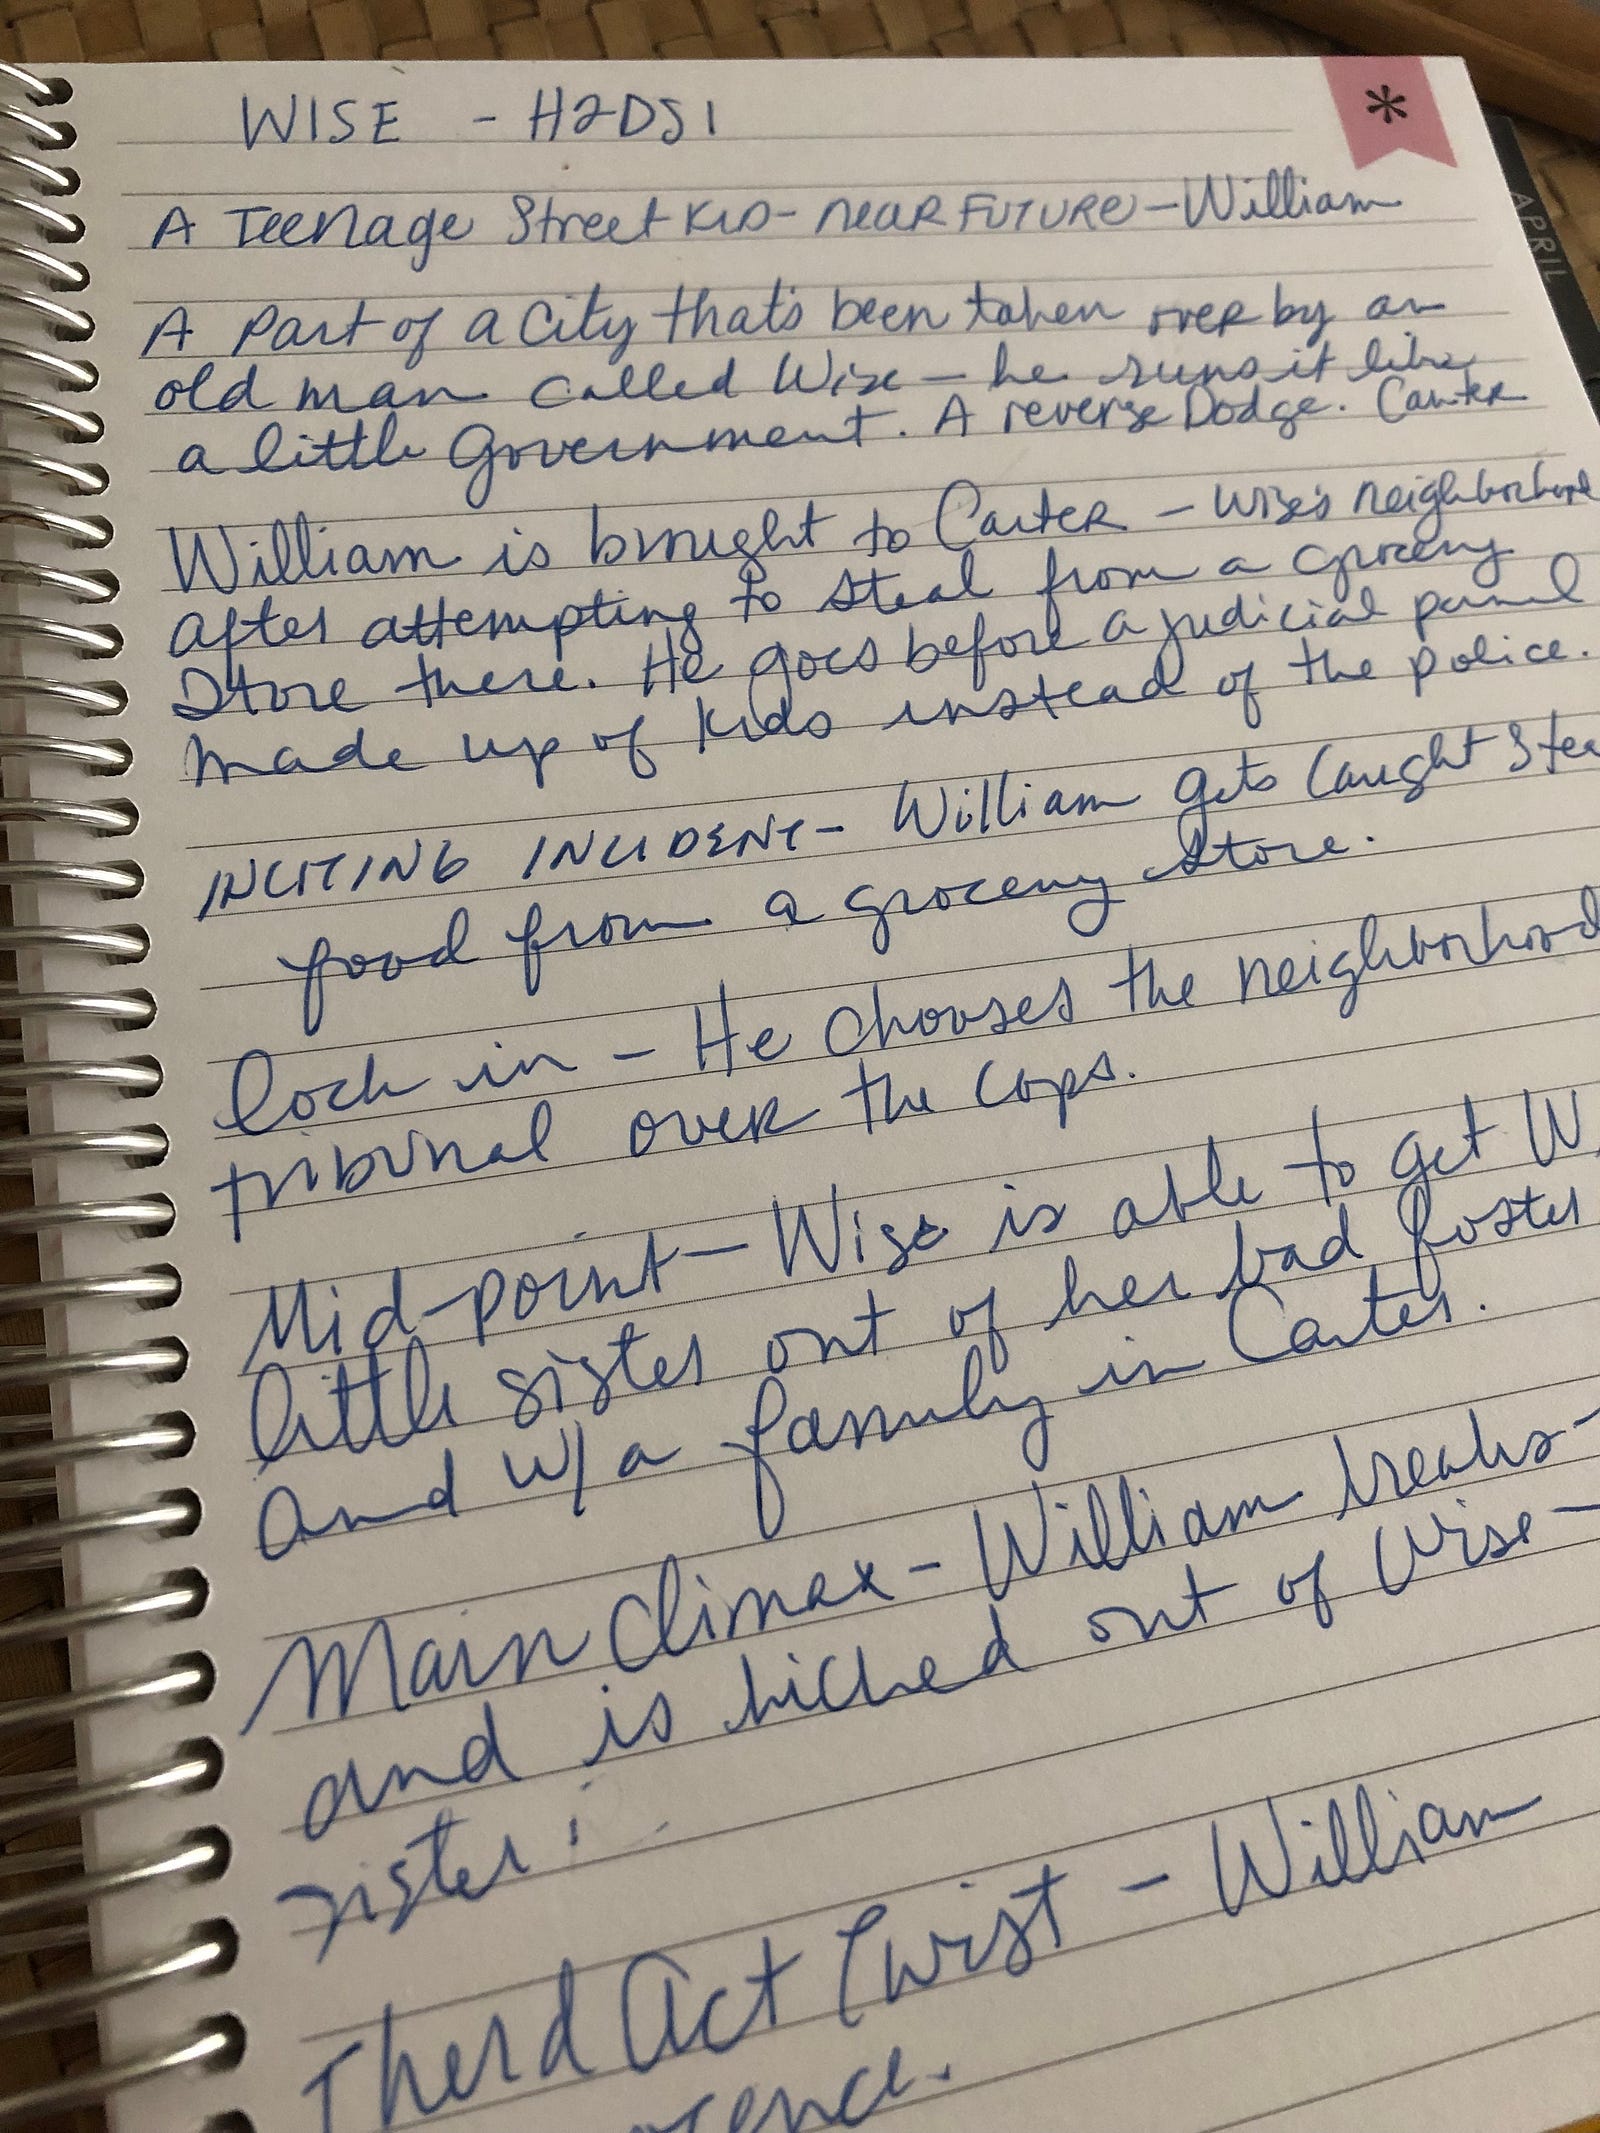 WISE - H2DS1
*
A Teenage Street KID - NEAR FUTURE - William
APRIL
A Part of a City that's been taken over by an
old man called Wise - he runs it like
a little Government. A reverse Dodge. Carter
William is brought to Carter - Wise's neighborhood
after attempting to steal from a grocery
Store there. He goes before a judicial panel
made up of kids instead of the police.
INCITING INCIDENT - William gets Caught Stea
food from a grocery store.
lock in - He chooses the neighborhood
tribunal over the cops.
Mid-point - Wise is able to get W
little sister out of her bad foster
and w/ a family in Carter.
Main Climax - William breaks -
and is kicked out of Wise -
sister
Third Act Twist - William